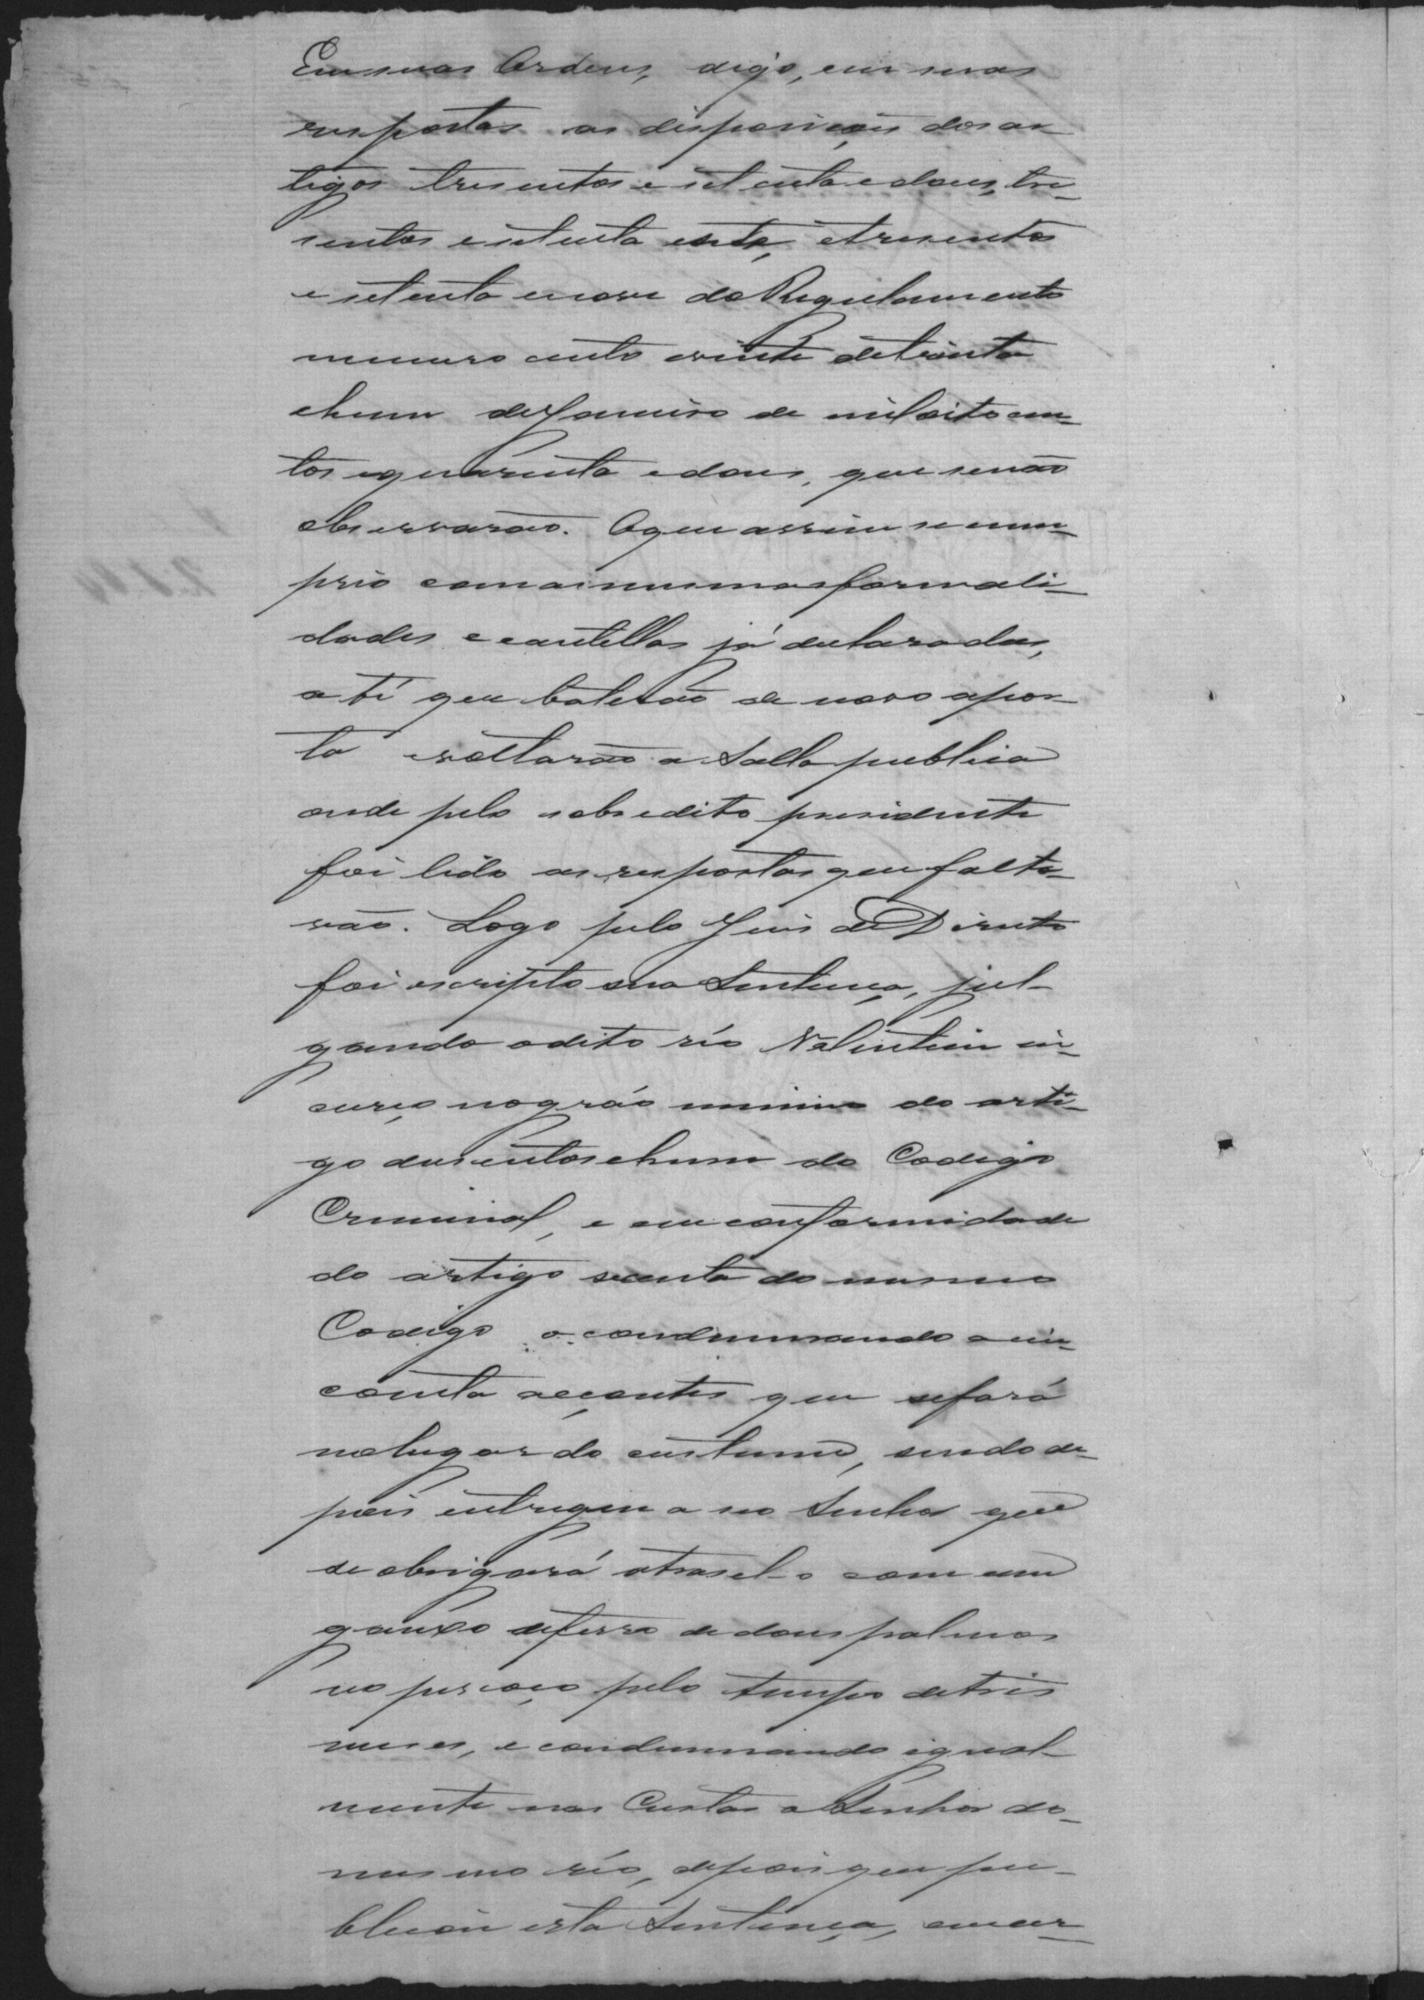 Em suas Ordens, digo, em suas
respostas as disposiçoẽs dos ar-
tigos tresentos e setenta e dous, tre-
sentos e setenta e sete, e tresentos
e setenta e nove do Regulamento
numero cento e vinte de trinta
e hum de Janeiro de mil oitocen-
tos e quarenta e dous, que senão
observarão. O que assim se cum-
prio com as mesmas formali-
dades e cautellas já declaradas,
até que baterão de novo a por-
ta e voltarão a Salla publica
onde pelo sobredito presidente
foi lido as respostas que falta-
vão. Logo pelo Juis de Direito
foi escripto sua Sentença, jul-
gando o dito réo Valentim in-
curço no gráo minimo do arti-
go dusentos e hum do Codigo
Criminal, e em conformidade
do artigo secenta do mesmo
Codigo o condemnando a cin-
coenta açoutes que se fará
no lugar do custume, sendo de-
pois entregue a seo Senhor que
se obrigará a trasel-o com um
ganxo de ferro de dous palmos
no pescoço pelo tempo de tres
meses, e condemnando igual-
mente nas Custas o Senhor do
mesmo réo, depois que pu-
blicou esta Sentença, encer-